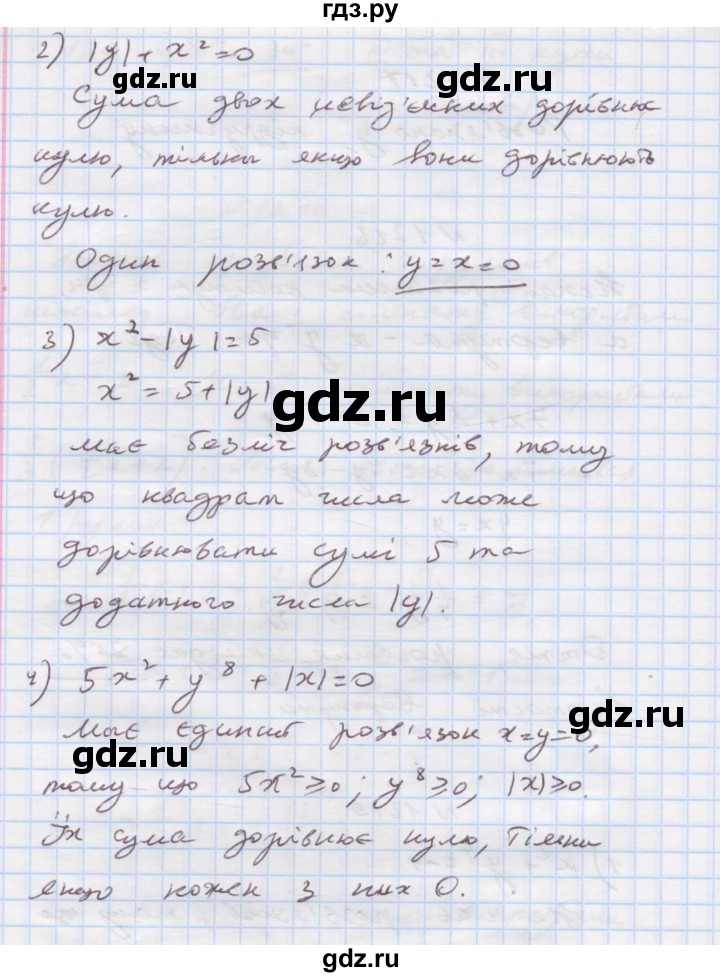 гдз.ру
2) |y| + x² = 0
Сума двох невід'ємних дорівнює
нулю, тільки якщо вони дорівнюють
нулю.
Один розв'язок : y = x = 0
3) x² - |y| = 5
x² = 5 + |y|
gdz.ru
має безліч розв'язків, тому
що квадрат числа може
дорівнювати сумі 5 та
додатного числа |y|.
4) 5x² + y⁸ + |x| = 0
має єдиний розв'язок x = y = 0,
тому що 5x² ≥ 0 ; y⁸ ≥ 0 ; |x| ≥ 0.
Їх сума дорівнює нулю, тільки
якщо кожен з них 0.
gdz.ru
gdz.ru
gdz.ru
gdz.ru
gdz.ru
gdz.ru